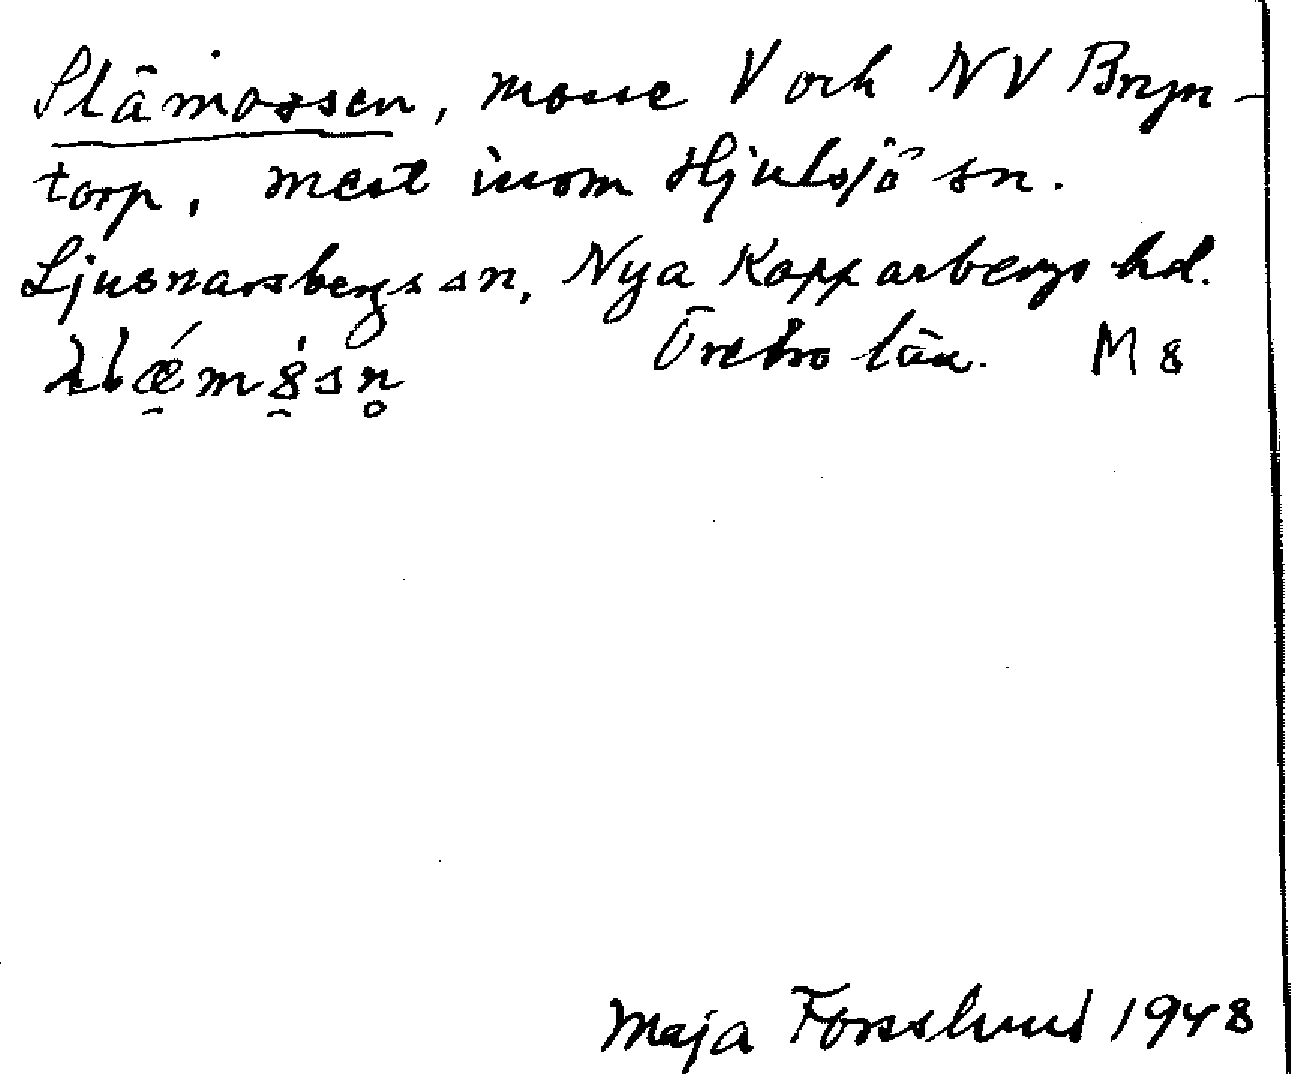 Slämossen, mosse V och NV Bryn-
torp, mest inom Hjulsjö sn.
Ljusnarsbergs sn, Nya Kopparbergs hd.
Örebro län. M 8
Maja Forsslund 1948